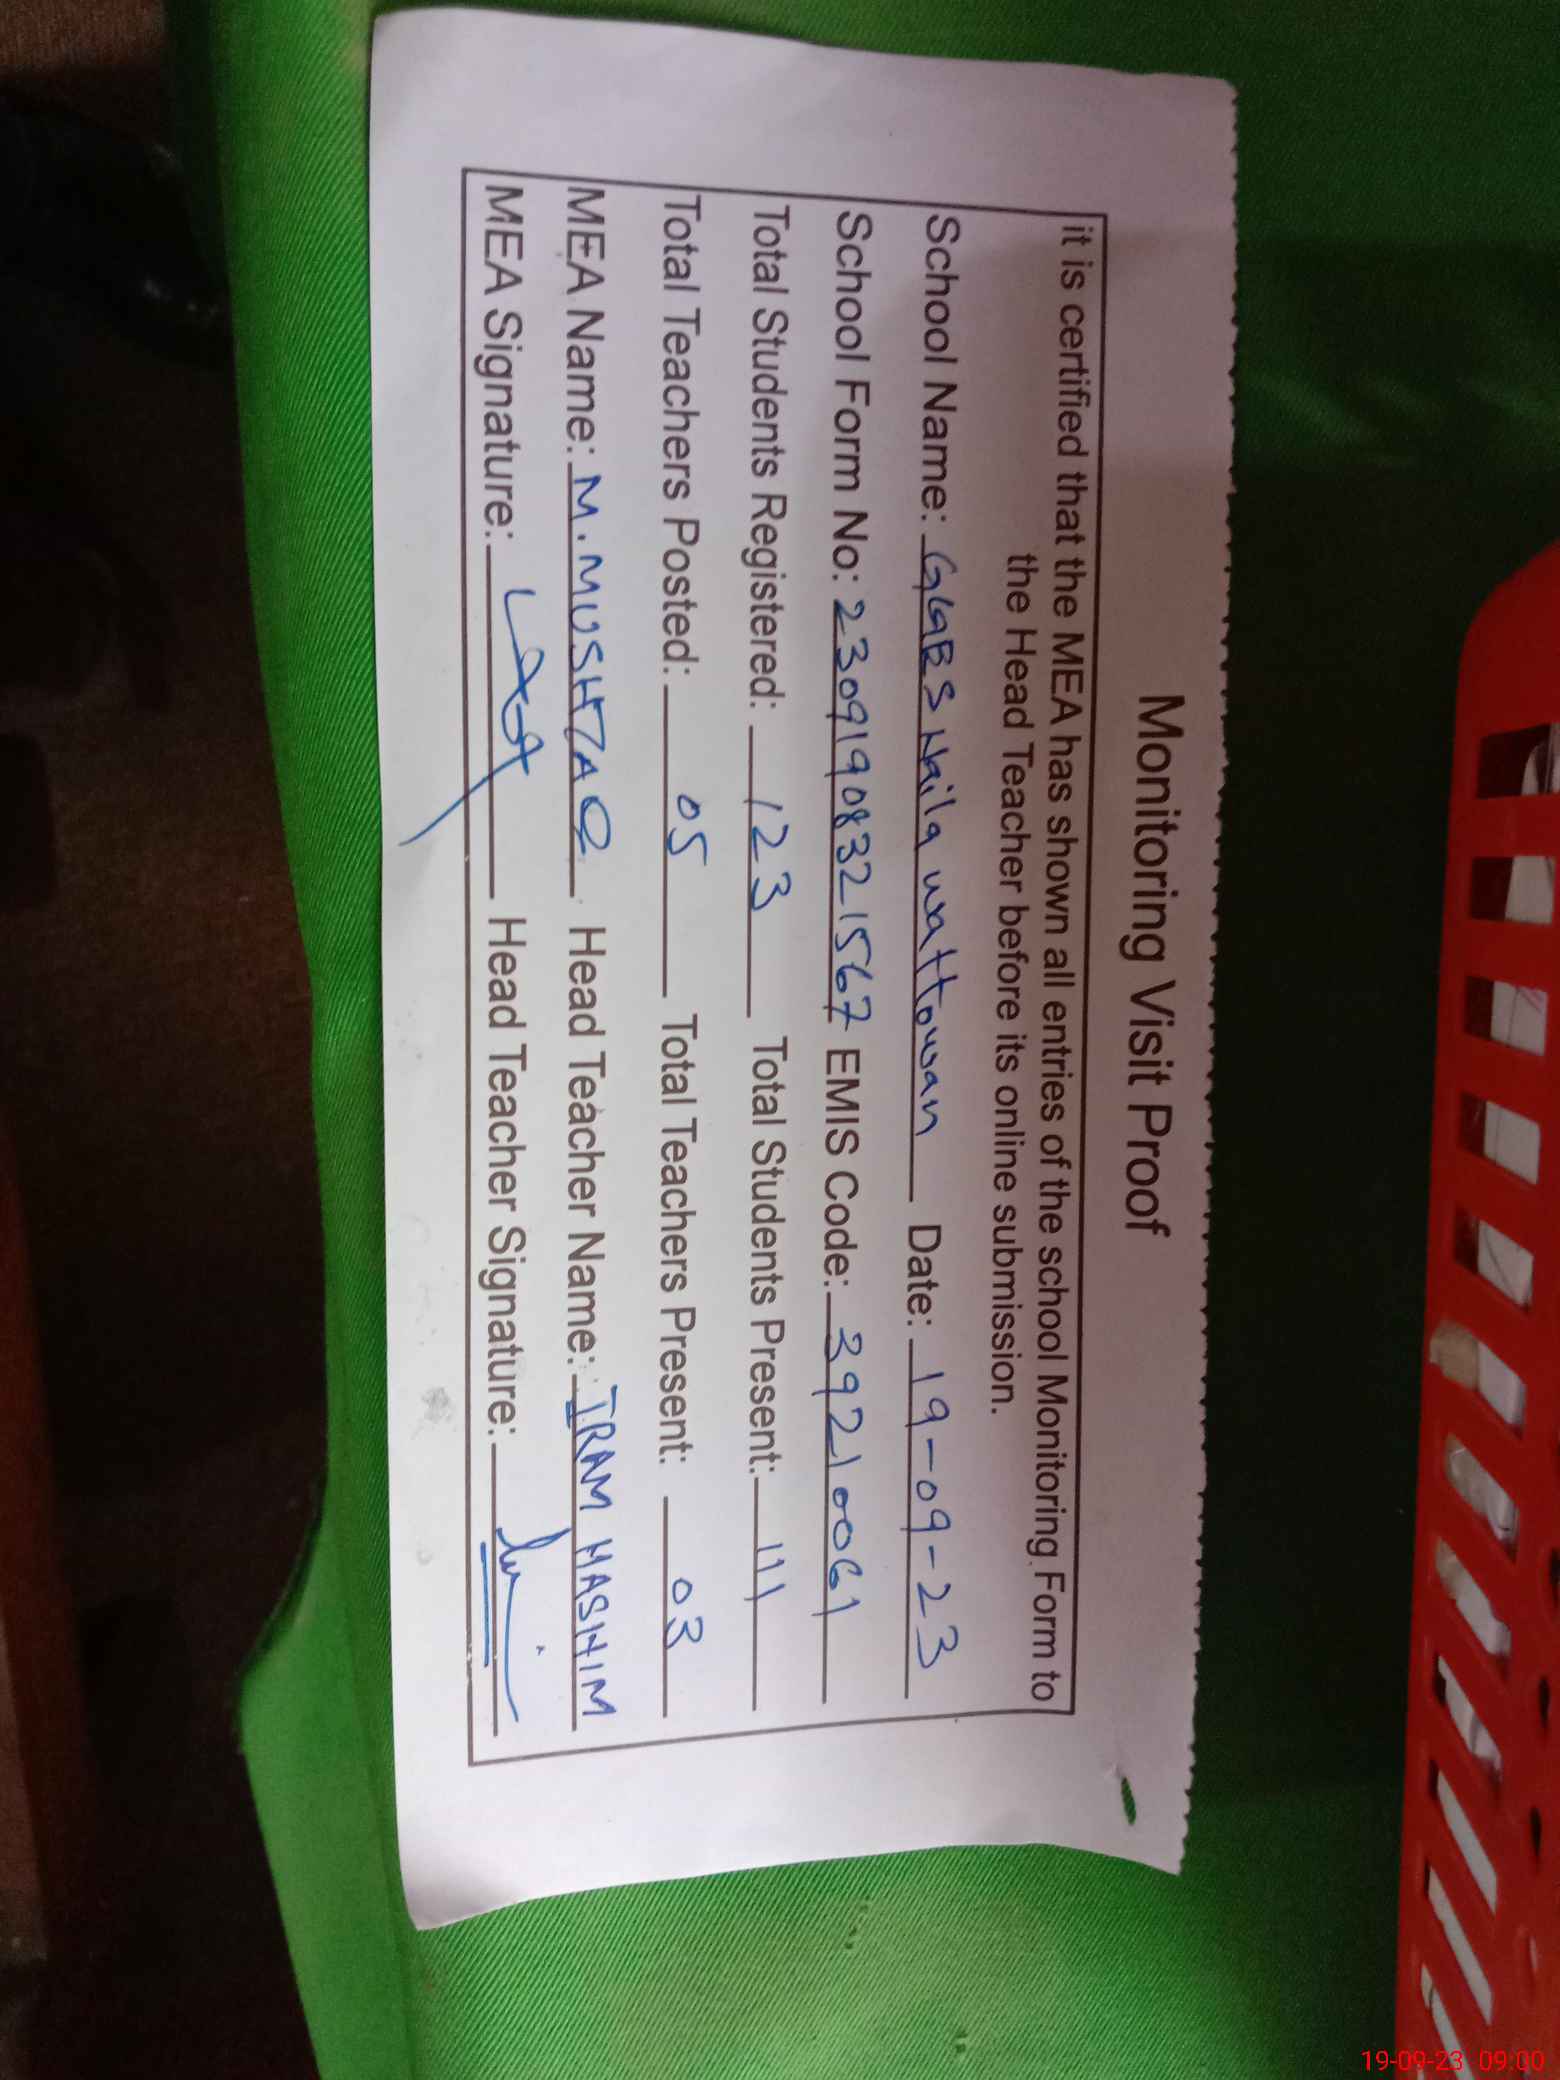 Monitoring Visit Proof
it is certified that the MEA has shown all entries of the school Monitoring Form to
the Head Teacher before its online submission.
School Name: GGES Naila wattowan Date: 19-09-23
School Form No: 23091908321567 EMIS Code: 39210061
Total Students Registered: 123 Total Students Present: 111
Total Teachers Posted: 05 Total Teachers Present: 03
MEA Name: M.MUSHTAQ Head Teacher Name: IRAM HASHIM
MEA Signature: Head Teacher Signature:
19-09-23 09:00